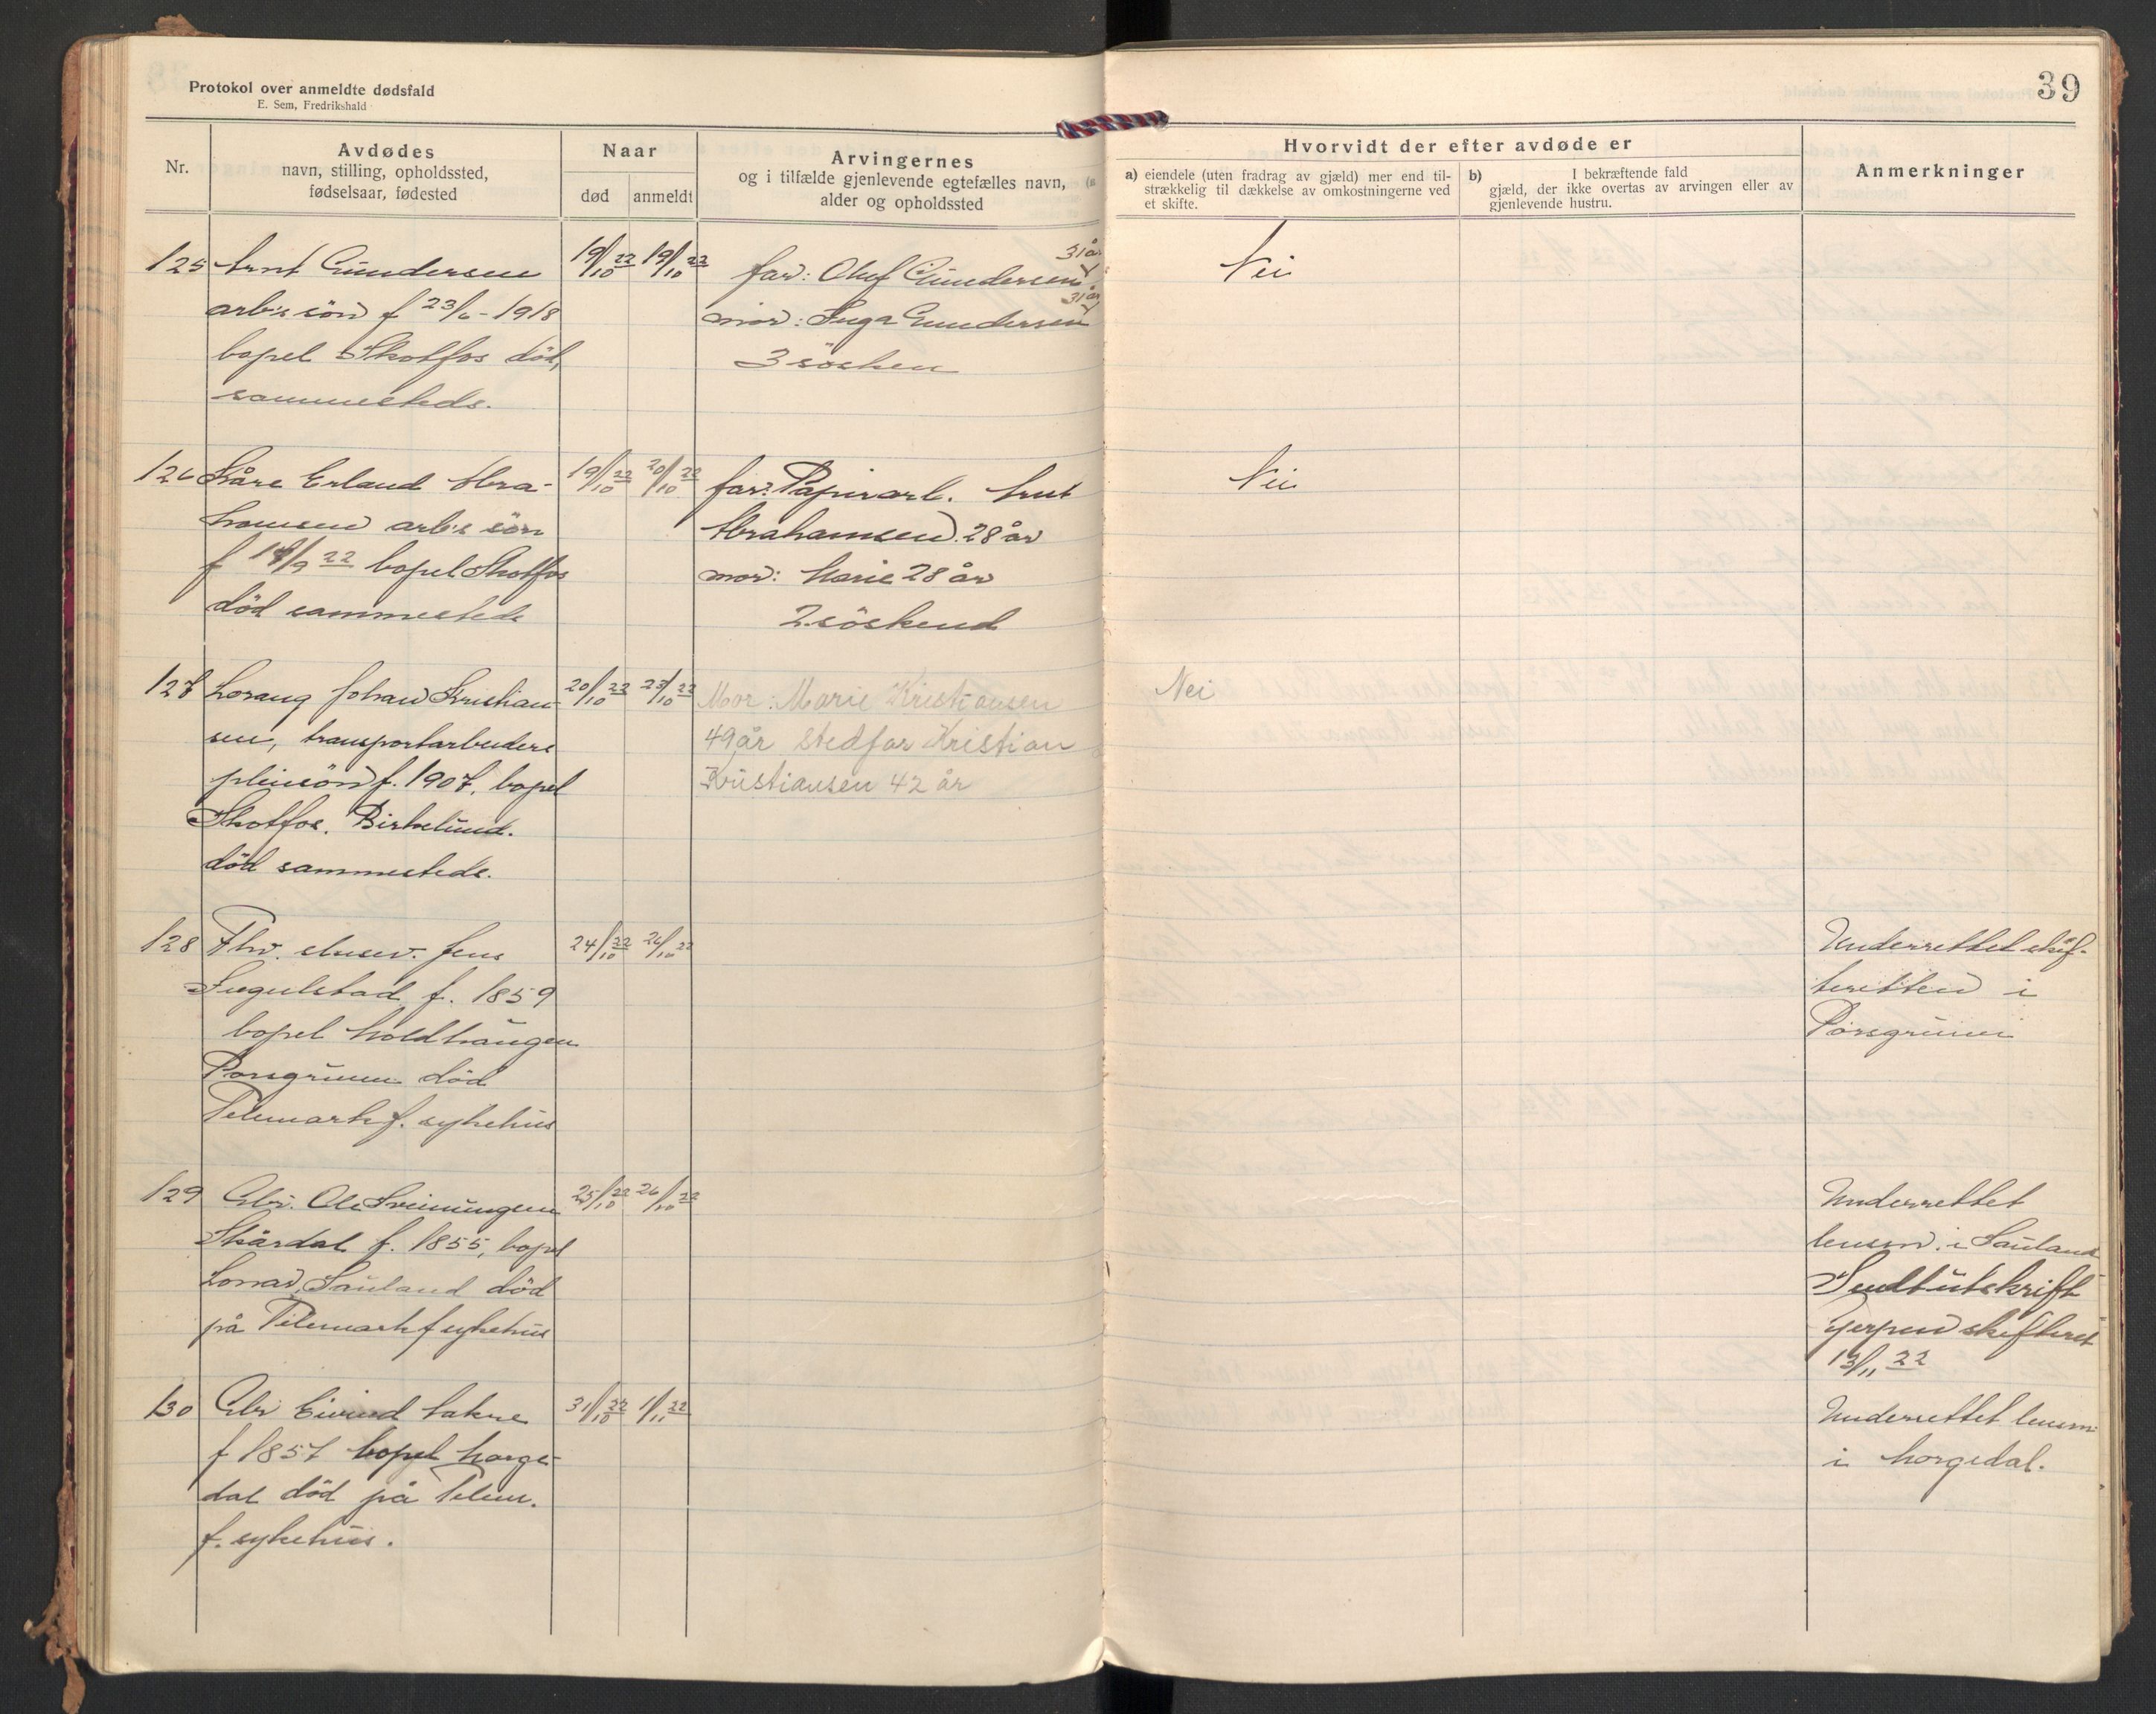 Protokol over anmeldte dødsfald
E. Sem, Fredrikshald
39
Nr.
Avdødes
navn, stilling, opholdssted,
fødselsaar, fødested
Naar
død
anmeldt
Arvingernes
og i tilfælde gjenlevende egtefælles navn,
alder og opholdssted
Hvorvidt der efter avdøde er
a) eiendele (uten fradrag av gjæld) mer end til-
strækkelig til dækkelse av omkostningerne ved
et skifte.
b) I bekræftende fald
gjæld, der ikke overtas av arvingen eller av
gjenlevende hustru.
Anmerkninger
125 Arnt Gundersen 19/10 22 19/10 22
arb.s sön f 23/6-1918
bopel Skotfos död,
sammesteds.
far: Oluf Gundersen 31 år
mor: Inga Gundersen 31 år
3 sösken
Nei
126 Kåre Erland Abra- 19/10 22 20/10 22
hamsen arb.s sön
f 14/9 22 bopel Skotfos
död sammesteds
far: Papirarb. Arnt
Abrahamsen. 28 år
mor: Marie 28 år
2 söskend
Nei
127 Lorang Johan Kristian- 20/10 22 23/10 22
sen, transportarbeiders
pleiesön f. 1907, bopel
Skotfos. Birkelund.
död sammesteds.
Mor: Marie Kristiansen
49 år Stedfar Kristian
Kristiansen 42 år
Nei
128 Fhv. Jens 24/10 22 26/10 22
Ingulstad f. 1859
bopel
Porsgrunn död
Telemark f. sykehus
Underrettet skif-
teretten i
Porsgrunn
129 Gbr. Ole Sveinungsen 25/10 22 26/10 22
Skårdal f. 1855, bopel
Sauland död
på Telemark f sykehus
Underrettet
lensm. i Sauland
Sendt utskrift
Gjerpen skifteret
13/11 22
130 Gbr Eivind 31/10 22 1/11 22
f 1857 bopel Morge-
dal död på Telem.
f. sykehus.
Underrettet lensm.
i Morgedal.